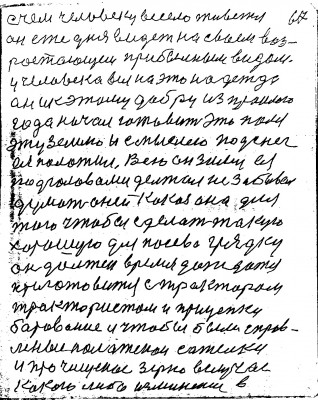 с чем человеку весело живется 67
он еже дня видет на своем воз-
растающем прибыльным видом.
у человека вся на это надежда
он и к этому добру из прошлого
года начал готовить это поля
эту землю и смыслею под снег
ея положил, всю он зиму ея
под головами держал не забывая
думат о ней какая она для
того чтобы сделат такую
хорошую для посева грядку
он должен время дождатся
приготовится с трактором
трактористом и прицепку
боронование и чтобы были справ-
леные
и прочищеное зерно в случае
какого либо изменений в